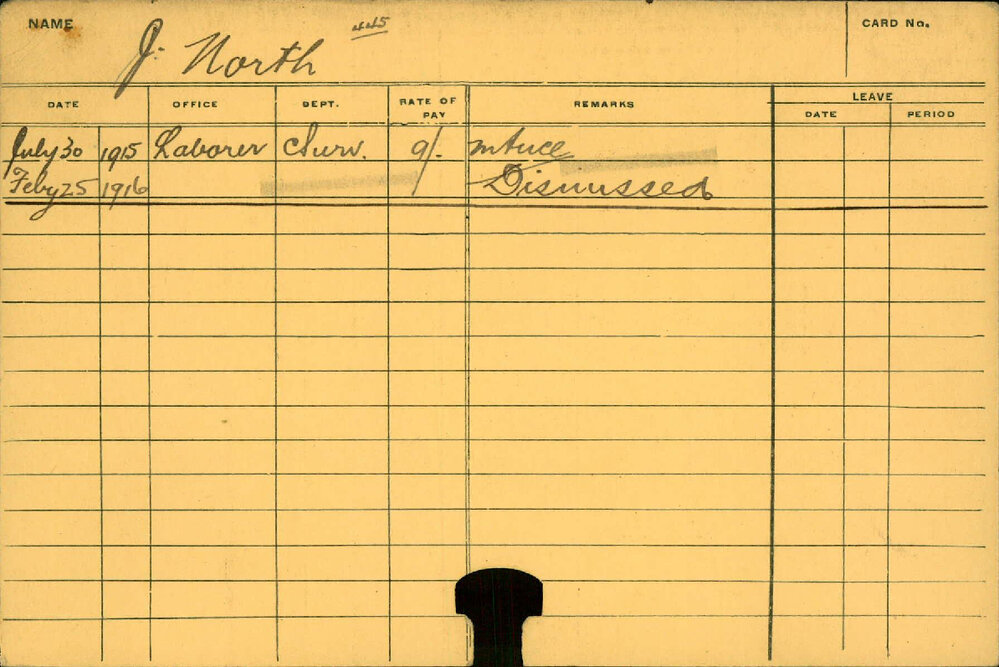 NAME J. North 445 CARD No.
DATE OFFICE DEPT. RATE OF PAY REMARKS LEAVE
DATE PERIOD
July 30 1915 Laborer C Surv. 9/-
Feby 25 1916 Dismissed